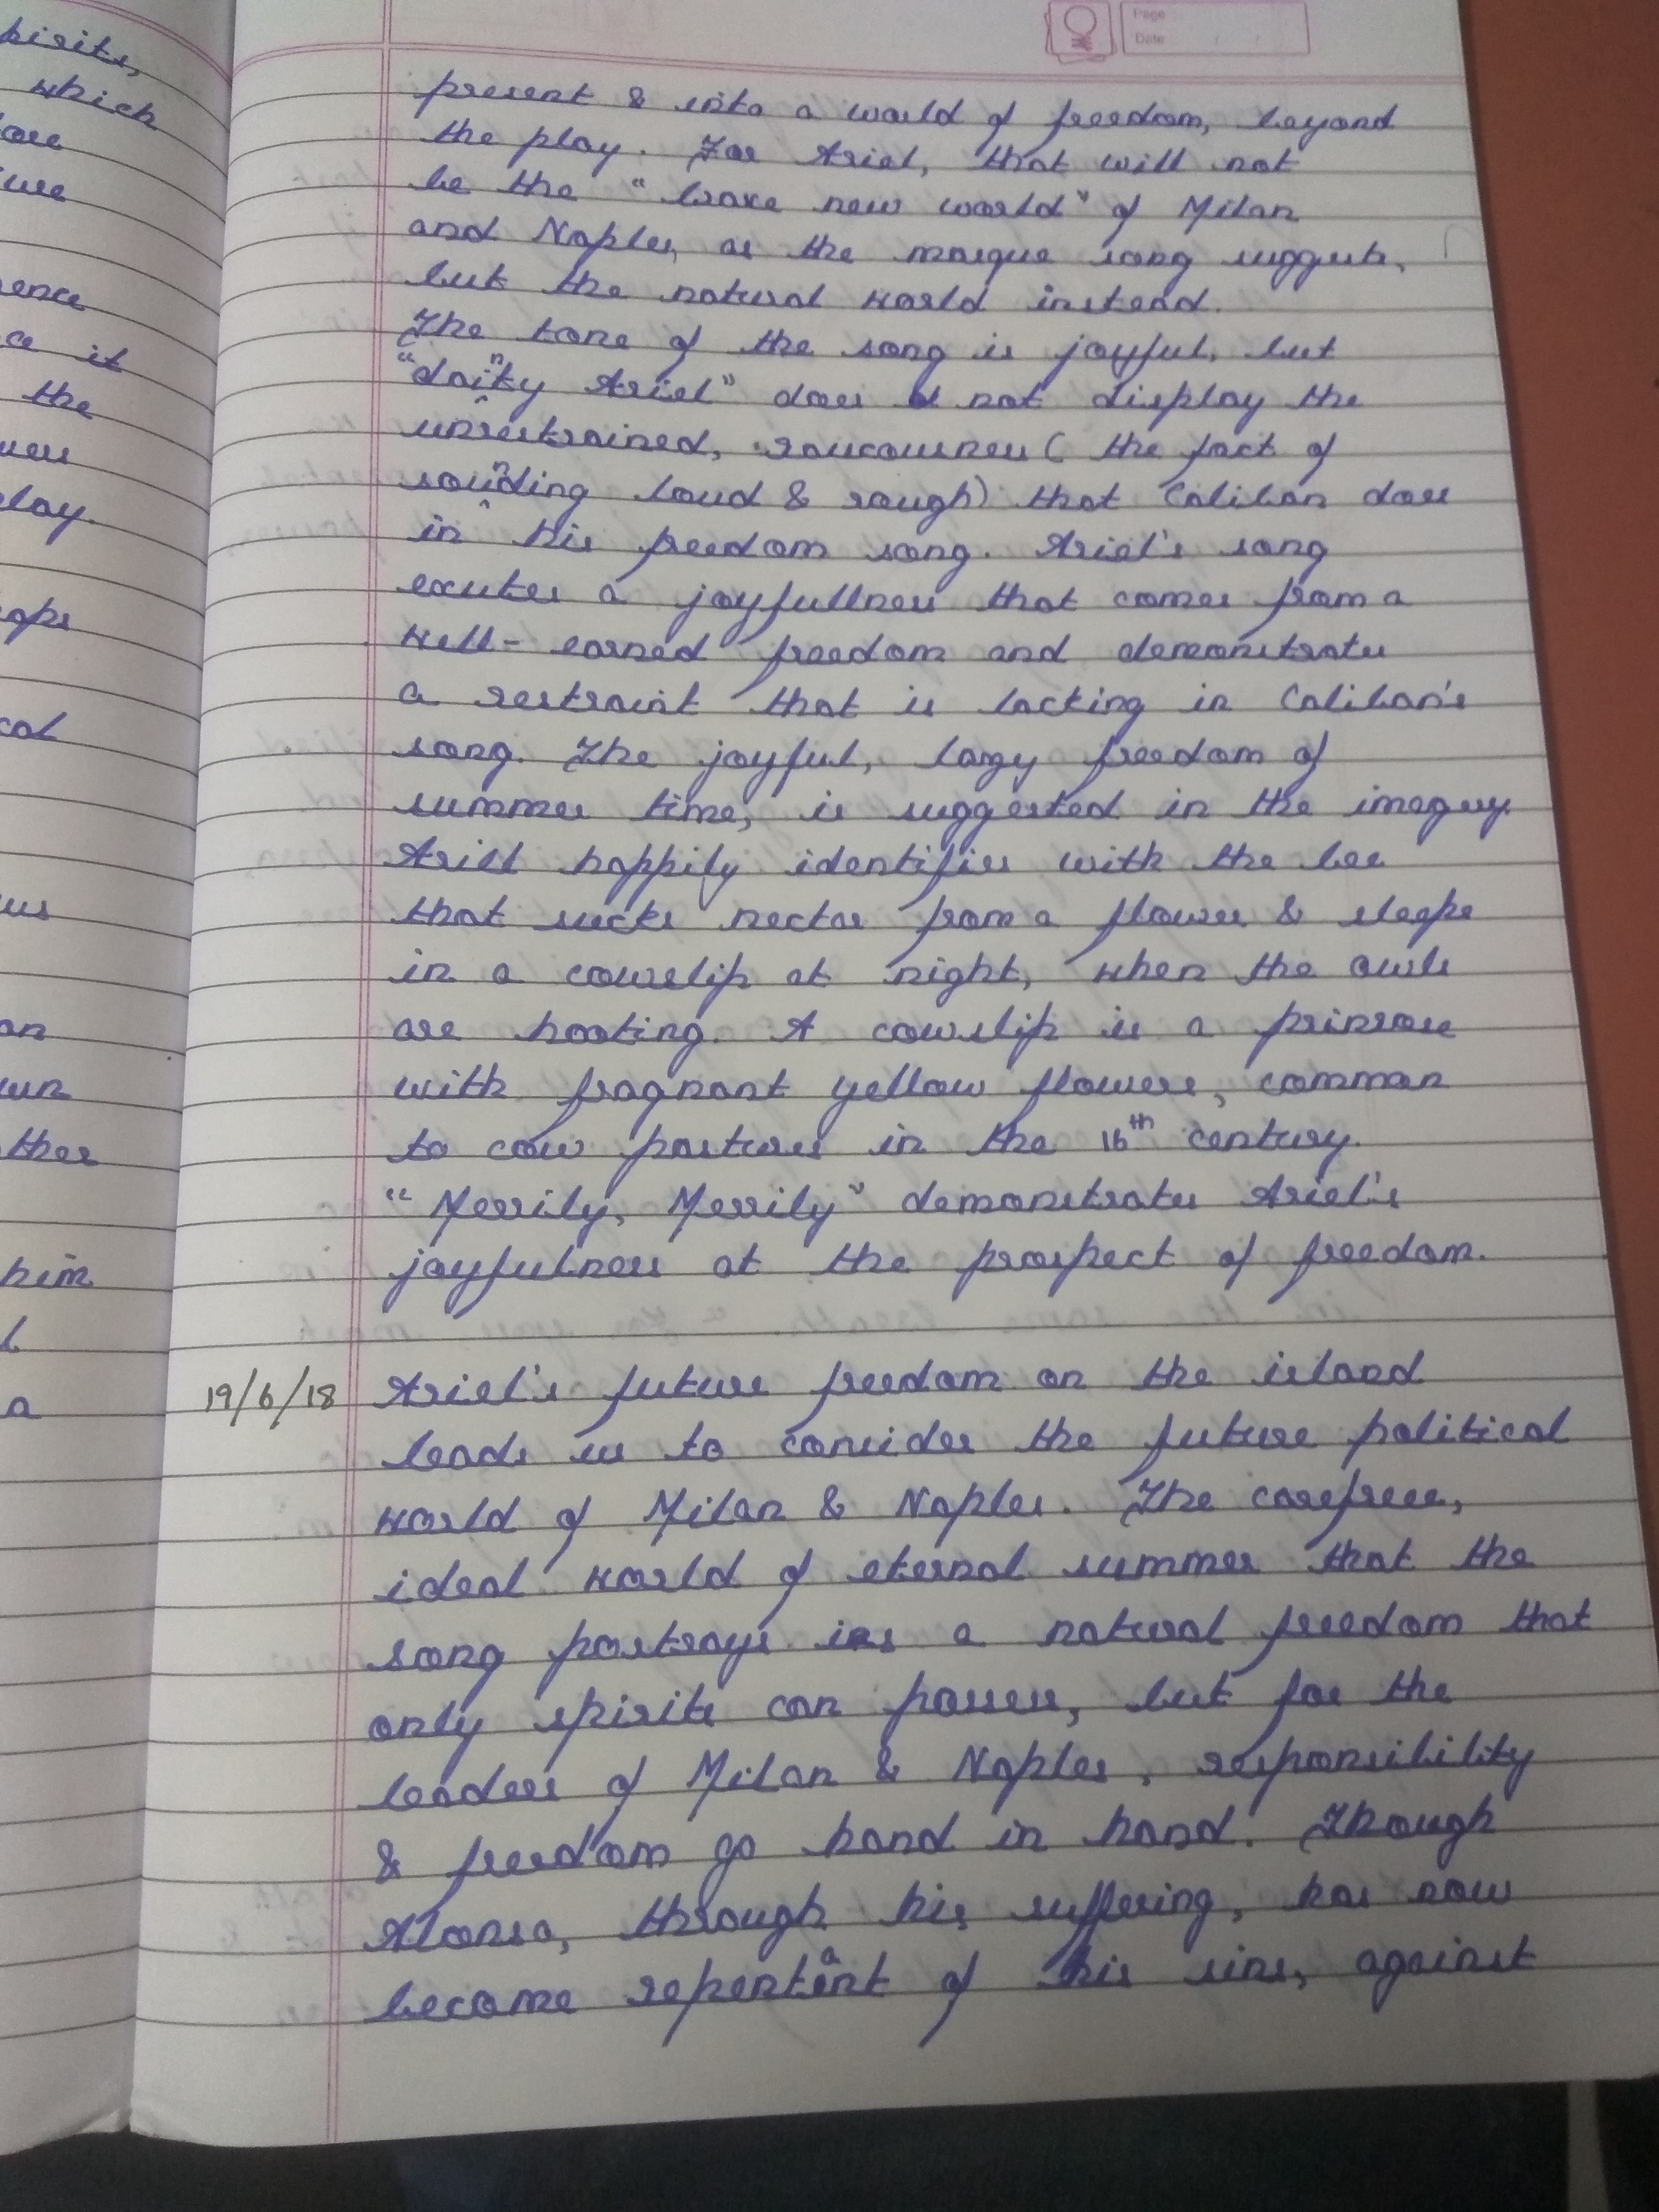 pirits,
which
ture
ence
ce it
the
play.
cal
us
an
ther
him
a
Page
Date / /
present & into a world of freedom, beyond
the play. For Ariel, that will not
be the "brave new world" of Milan
and Naples, as the masque song suggests,
but the natural world instead.
The tone of the song is joyful, but
"dainty Ariel" does not display the
unrestrained, raucousness ( the fact of
sounding loud & rough) that Caliban does
in his freedom song. Ariel's song
excutes a joyfullness that comes from a
well-earned freedom and demonstrates
a restraint that is lacking in Caliban's
song. The joyful, lazy freedom of
summer time, is suggested in the imagery.
Ariel happily identifies with the bee
that sucks nectar from a flower & sleeps
in a cowslip at night, when the owls
are hooting. A cowslip is a primrose
with fragnant yellow flowers, common
to cow pastures in the 16th century.
"Merrily, Merrily" demonstrates Ariel's
joyfulness at the prospect of freedom.
19/6/18 Ariel's future freedom on the island
leads us to consider the future political
world of Milan & Naples. The carefree,
ideal world of eternal summer that the
song portrays is a natural freedom that
only spirits can possess, but for the
leaders of Milan & Naples, responsibility
& freedom go hand in hand. Though
Alonso, through his suffering, has now
become repentant of his sins, against